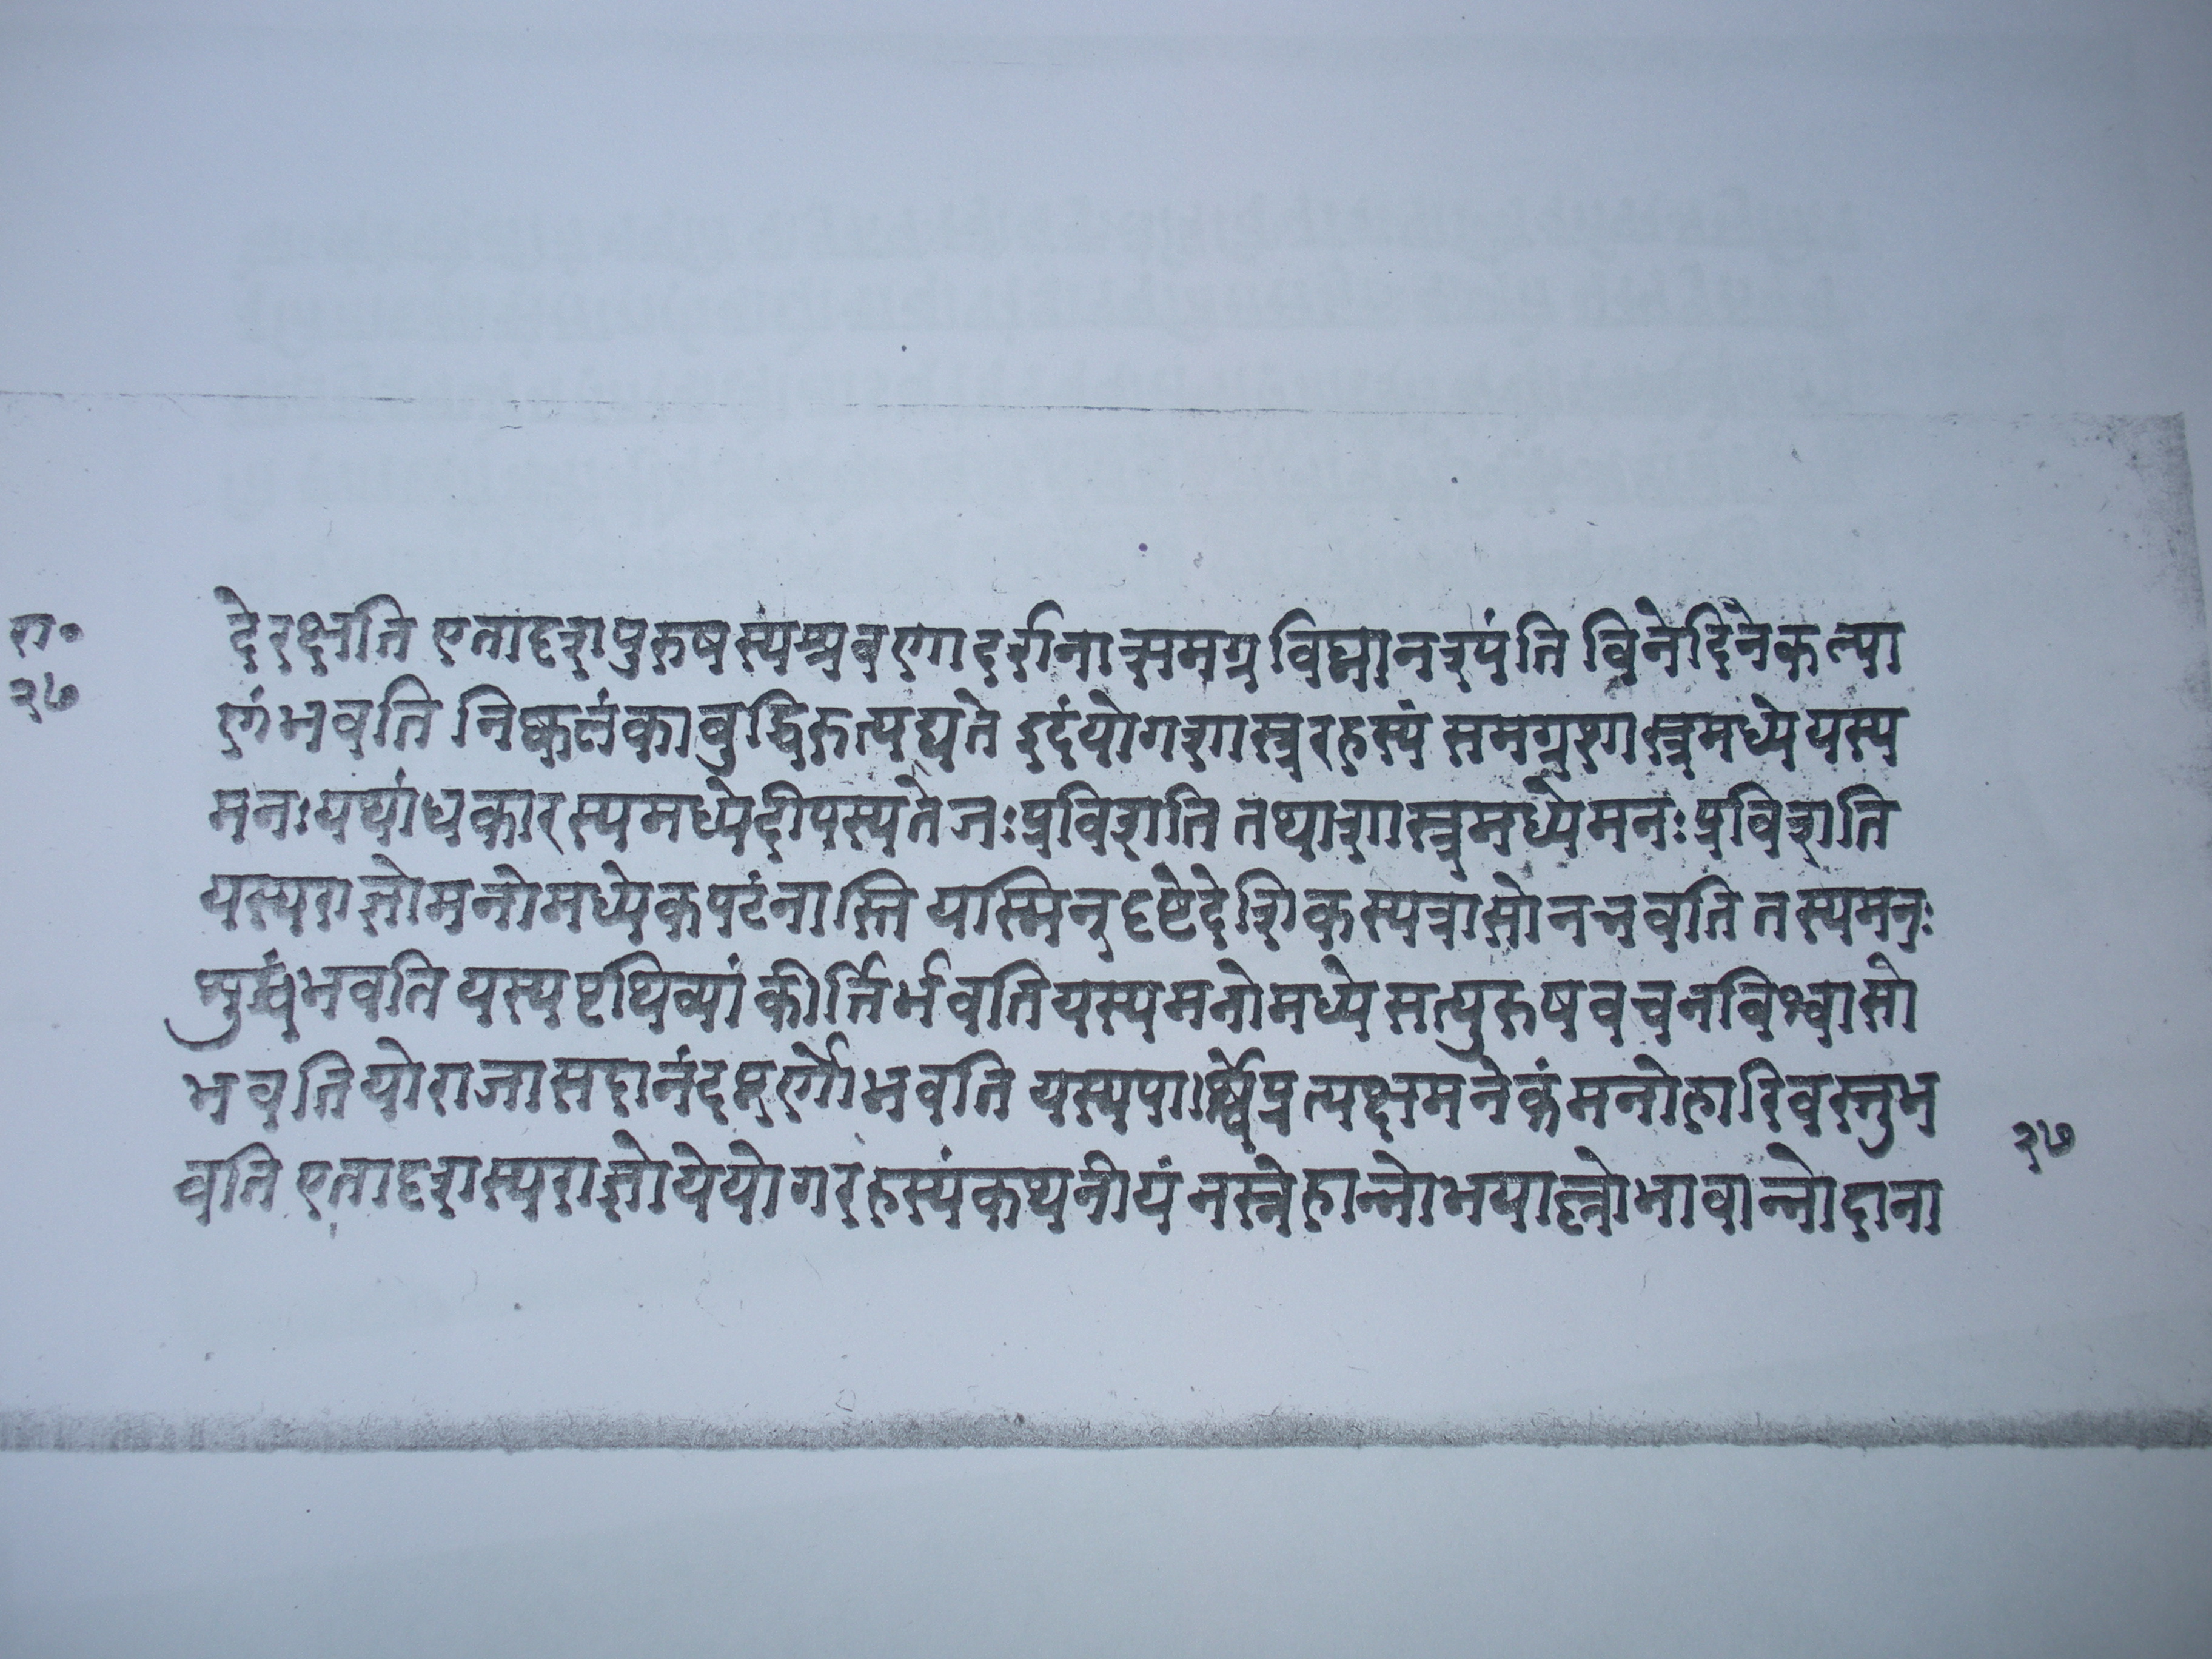 रा॰
२७
देरक्षति एतादृशपुरुषस्यश्रवणादर्शनात्समग्रविघ्नानश्पंति विनेदिनेकल्या
णंभवति निष्कलंकाबुद्धिरुत्पद्यते इदंयोगशास्त्ररहस्यं समग्रशास्त्रमध्येयस्य
मनःयथांधकारस्यमध्येदीपस्यतेजःप्रविशति तथाशास्त्रमध्येमनःप्रविशति
यस्यराज्ञोमनोमध्येकपटंनास्ति यस्मिन्दृष्टेदेशिकस्यत्रासोनभवति तस्यमनः
शुद्धंभवति यस्यपृथिव्यां कीर्त्तिर्भवतियस्यमनोमध्येसत्पुरुषवचनविश्वासो
भवतियोराजासदानंदपूर्णोभवति यस्यपार्श्वेप्रत्यक्षमनेकंमनोहारिवस्तुभ
वति एतादृशस्यराज्ञोयेयोगरहस्यंकथनीयं नस्नेहान्नोभयान्नोभावान्नोदाना
२७